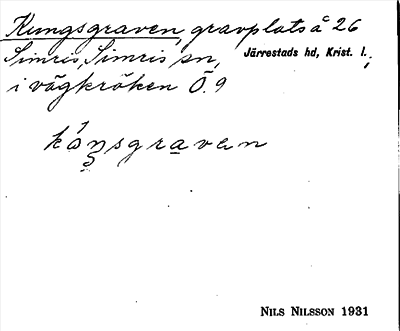 Kungsgraven, gravplats å 26
Simris, Simris sn, Järrestads hd, Krist. l.,
i vägkröken Ö. 9
kåŋsgravan
NILS NILSSON 1931